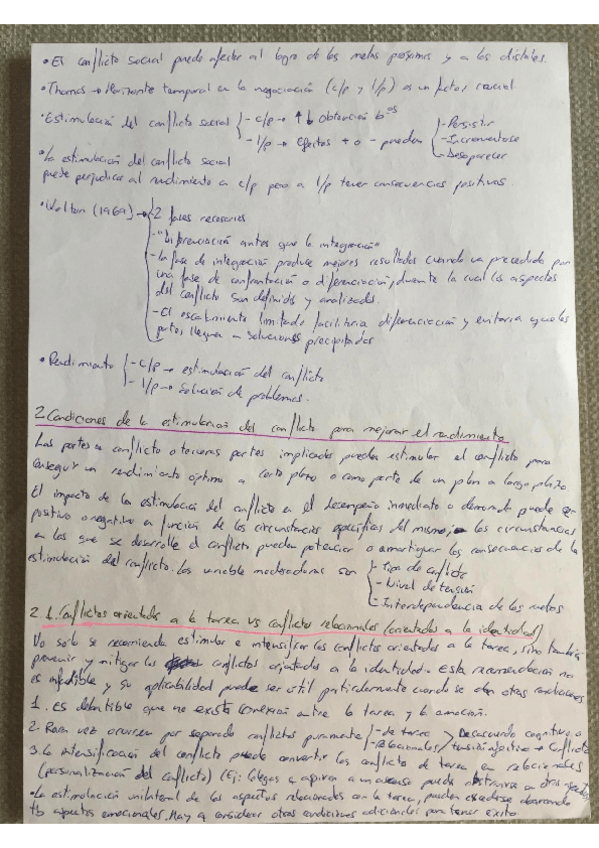 • El conflicto social puede afectar al logro de las metas próximas y a las distales.
• Thomas → Horizonte temporal en la negociación (c/p y l/p) es un factor crucial
• Estimulación del conflicto social - c/p → ↑ b obtención b^os
- l/p → Efectos + o - pueden - Persistir
- Incrementarse
- Desaparecer
• La estimulación del conflicto social
puede perjudicar al rendimiento a c/p pero a l/p tener consecuencias positivas.
• Walton (1969) → - 2 fases necesarias
- "Diferenciación antes que la integración"
- La fase de integración produce mejores resultados cuando va precedida por
una fase de confrontación o diferenciación, durante la cual los aspectos
del conflicto son definidos y analizados.
- El escalamiento limitado facilitaria diferenciación y evitaria que las
partes lleguen a soluciones precipitadas
• Rendimiento - c/p → estimulación del conflicto
- l/p → Solución de problemas.
2. Condiciones de la estimulación del conflicto para mejorar el rendimiento
Las partes en conflicto o terceras partes implicadas pueden estimular el conflicto para
conseguir un rendimiento óptimo a corto plazo o como parte de un plan a largo plazo.
El impacto de la estimulación del conflicto en el desempeño inmediato o demorado puede ser
positivo o negativo en función de las circunstancias específicas del mismo, las circunstancias
en las que se desarrolle el conflicto pueden potenciar o amortiguar las consecuencias de la
estimulación del conflicto. Las variable moderadoras son - Tipo de conflicto
- Nivel de tensión
- Interdependencia de las metas
2.1. Conflictos orientados a la tarea vs conflictos relacionales (orientados a la identidad)
No solo se recomienda estimular e intensificar los conflictos orientados a la tarea, sino también
prevenir y mitigar los conflictos orientados a la identidad. Esta recomendación no
es infalible y su aplicabilidad puede ser útil particularmente cuando se dan otras condiciones
1. Es debatible que no exista conexión entre la tarea y la emoción.
2. Rara vez ocurren por separado conflictos puramente - de tarea > Desacuerdo cognitivo o
- relacionales / tensión afectiva → Conflicto
3. La intensificación del conflicto puede convertir los conflicto de tarea en relacionales
(personalización del conflicto) (Ej: Colegas q aspiran a un ascenso puede obstruirse en otros aspectos)
• La estimulación unilateral de los aspectos relacionados con la tarea, pueden
tb aspectos emocionales. Hay q considerar otras condiciones adicionales para tener éxito.